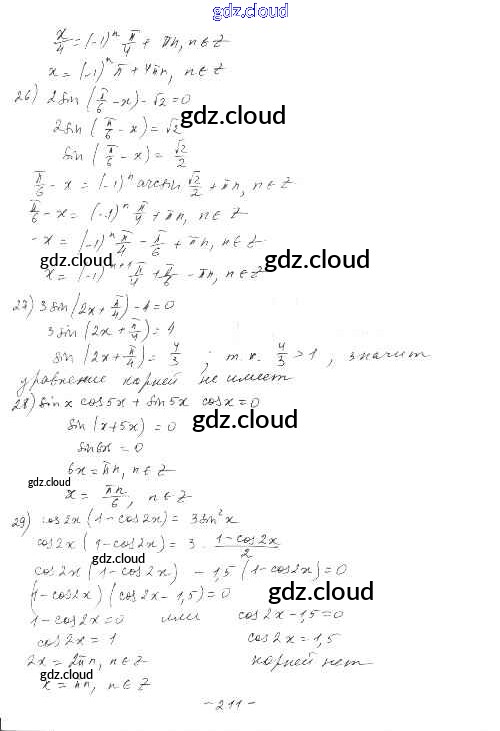 gdz.cloud
x/4 = (-1)^n π/4 + πn, n ∈ Z
x = (-1)^n π + 4πn, n ∈ Z
26) 2sin(π/6 - x) - √2 = 0
gdz.cloud
2sin(π/6 - x) = √2
sin(π/6 - x) = √2/2
π/6 - x = (-1)^n arcsin √2/2 + πn, n ∈ Z
π/6 - x = (-1)^n π/4 + πn, n ∈ Z
-x = (-1)^n π/4 - π/6 + πn, n ∈ Z
gdz.cloud gdz.cloud
x = (-1)^{n+1} π/4 + π/6 - πn, n ∈ Z
27) 3sin(2x + π/4) - 4 = 0
3sin(2x + π/4) = 4
sin(2x + π/4) = 4/3 ; т.к. 4/3 > 1, значит
уравнение корней не имеет
28) sin x cos5x + sin5x cosx = 0
gdz.cloud
sin(x + 5x) = 0
sin6x = 0
6x = πn, n ∈ Z
gdz.cloud
x = πn/6, n ∈ Z
29) cos2x(1 - cos2x) = 3sin²x
gdz.cloud
cos2x(1 - cos2x) = 3 · (1 - cos2x)/2
cos2x(1 - cos2x) - 1,5(1 - cos2x) = 0
(1 - cos2x)(cos2x - 1,5) = 0
gdz.cloud
1 - cos2x = 0 или cos2x - 1,5 = 0
cos2x = 1 cos2x = 1,5
2x = 2πn, n ∈ Z корней нет
gdz.cloud
x = πn, n ∈ Z
- 211 -